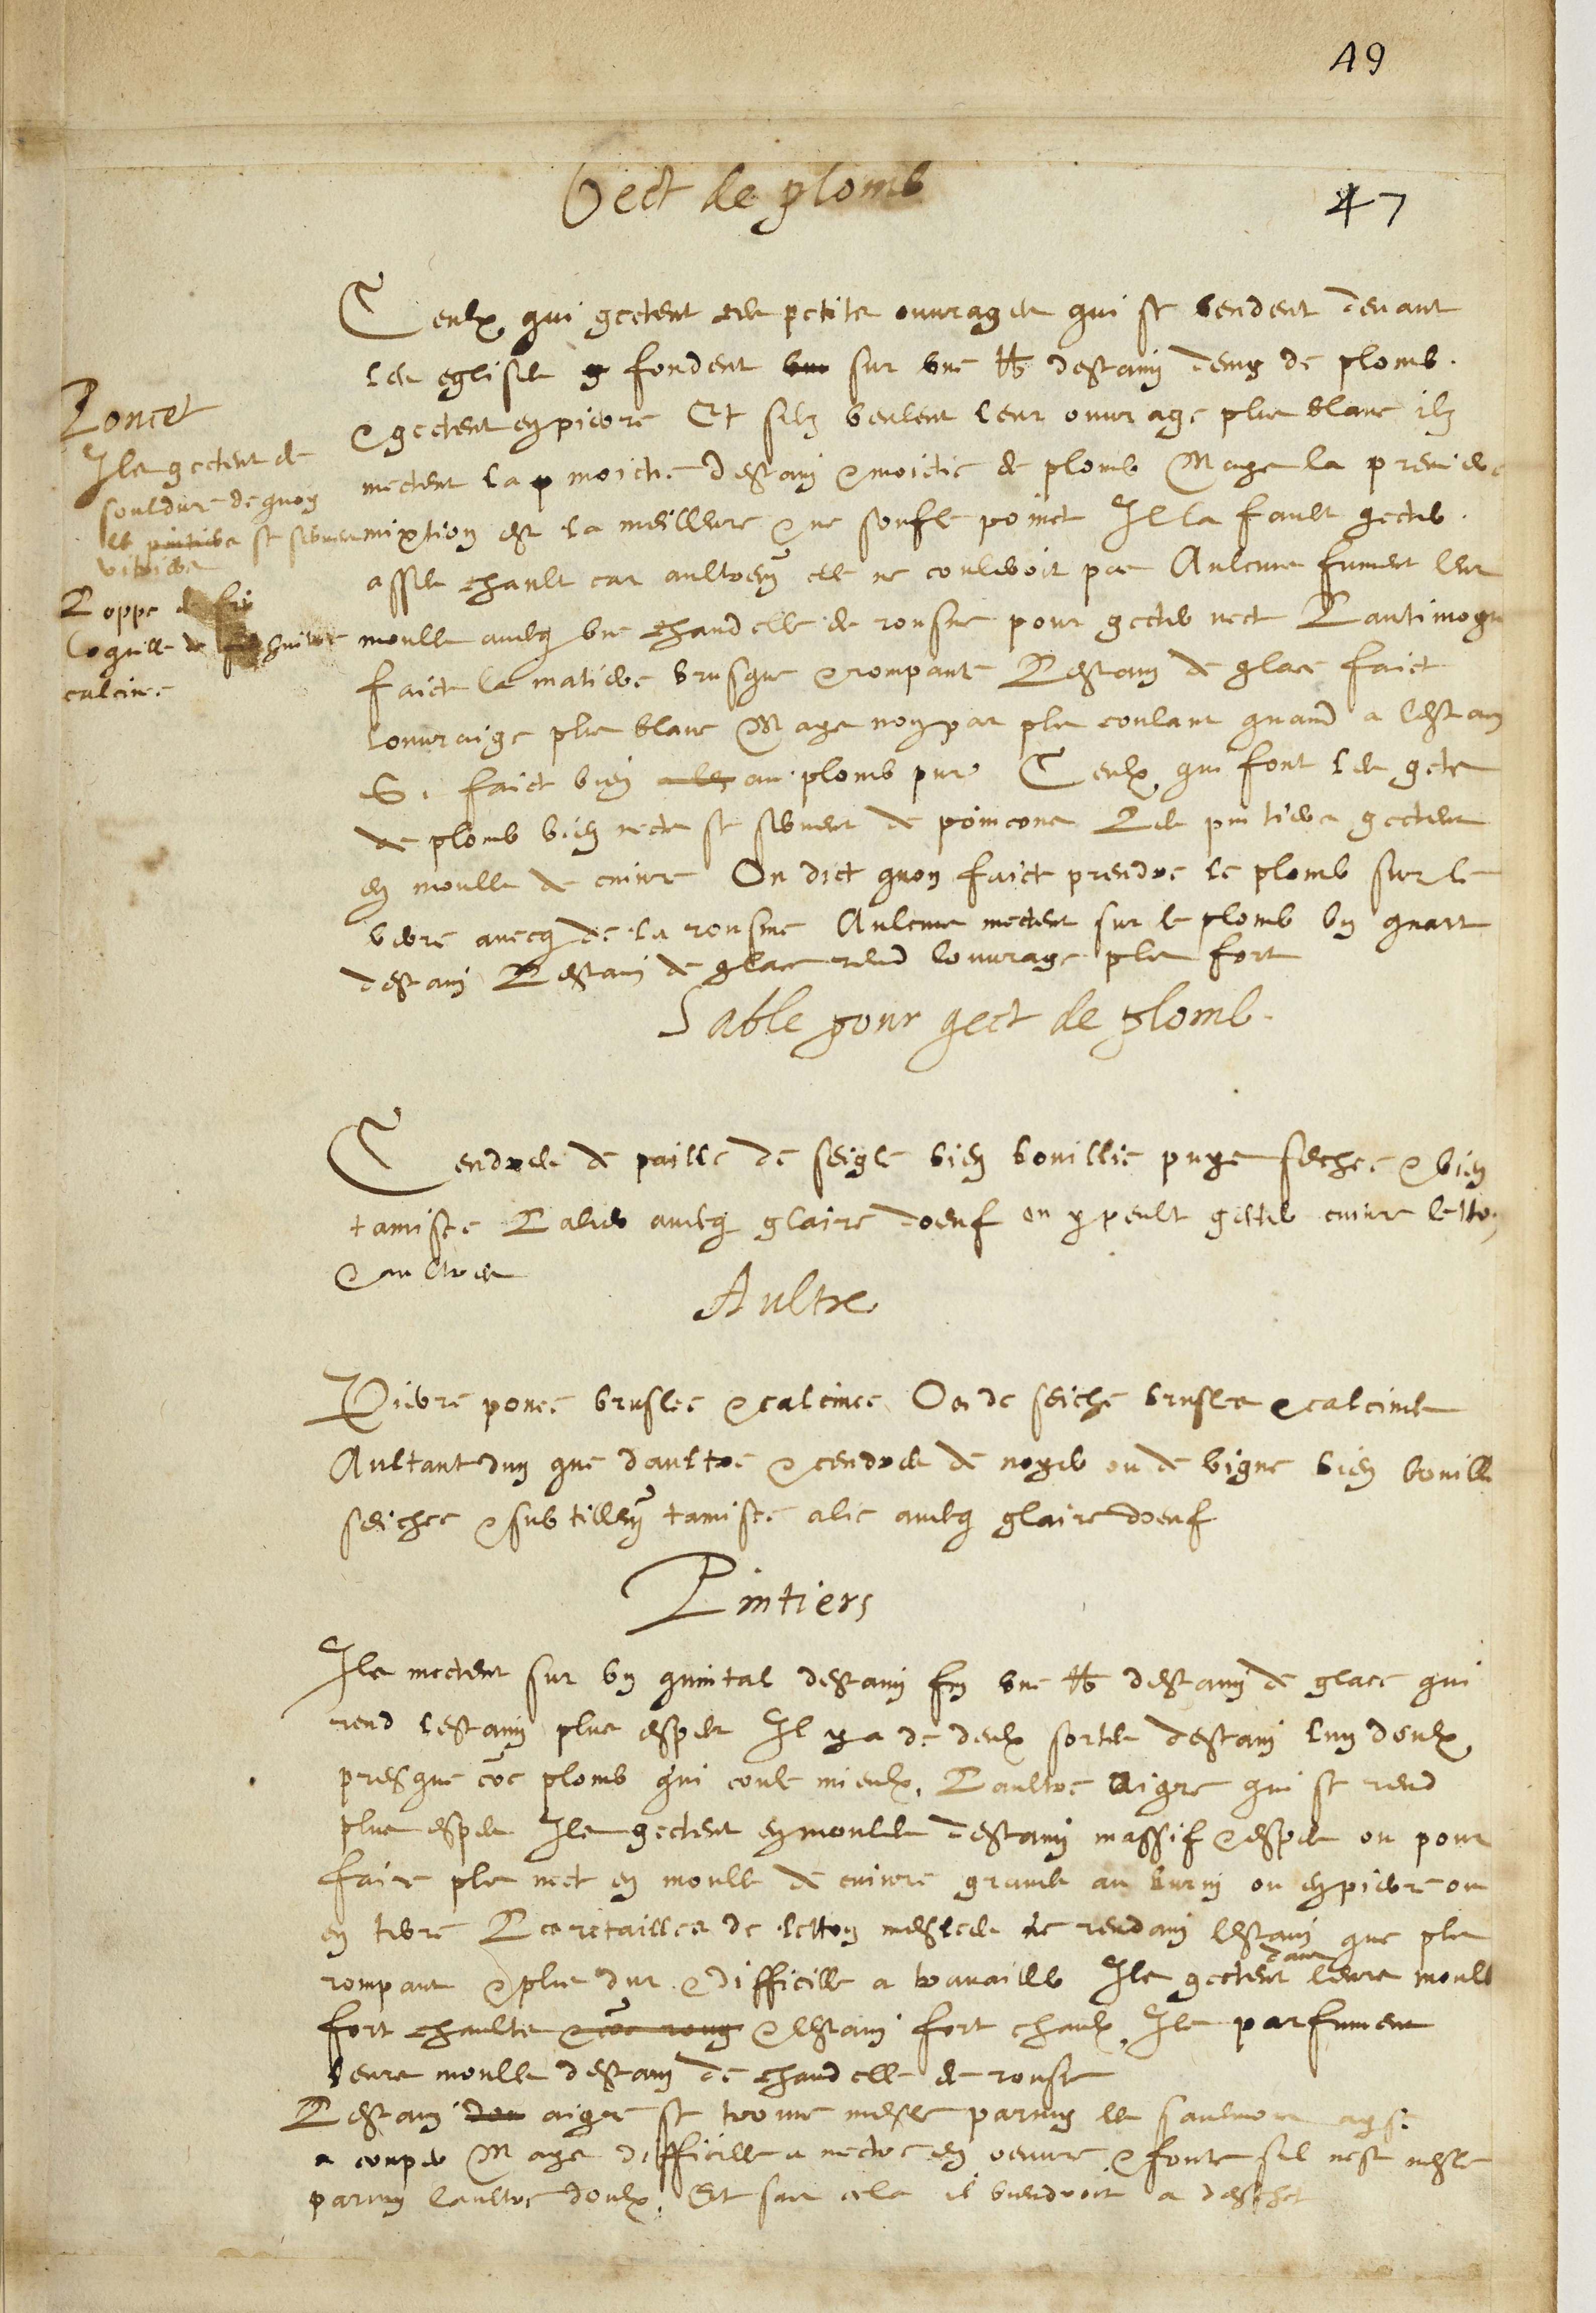 49
47
Gect de plomb
Ceulx qui gectent ces petits ouvrages qui se vendent devant
les eglises fondent sur une lb destain demy de plomb.
& gectent en pierre Et silz veulent leur ouvrage plus blanc ilz
mectent la moictie destain & moictie de plomb Mays la premiere
mixtion est la meilleure & ne soufle poinct Il la fault gecter
asses chault car aultrem ell ne couleroit pas Aulcuns fument leur
moulle avecq une chandelle de rousine pour gecter nect Lantimoyne
faict la matiere brusque & rompante Lestain de glace faict
louvraige plus blanc Mays non pas plus coulant quand a lestain
Si faict bien au plomb pur Ceulx qui font les gects
de plomb bien nects se servent de poincons Les pintiers gectent
en moulle de cuivre On dict quon faict prendre le plomb sur le
verre avecq de la rousine Aulcuns mectent sur le plomb un quart
destain Lestain de glace rend louvrage plus fort
Poncet
Ils gectent de
souldure de quoy
les pintiers se servent
vitriers
Loppe de
Coquille de huitre
calcinee
Sable pour gect de plomb.
Cendres de paille de seigle bien bouillie puys sechee & bien
tamisee Lalier avecq glaire doeuf on y peult gecter cuivre letton
& aultres
Aultre
Pierre ponce bruslee & calcinee Os de seiche brusles & calcines
Aultant dun que daultre & cendres de noyer ou de vigne bien bouillie
seichee & subtillem tamisee alie avecq glaire doeuf
Pintiers
Ils mectent sur un quintal destain fin une lb destain de glace qui
rend lestain plus espes Il y a de deulx sortes destain lun doulx
presque coe plomb qui coule mieulx, Laultre aigre qui se rend
plus espes Ils gectent en moulle destain massif & espes ou pour
faire plus nect en moulle de cuivre grave au burin ou en pierre ou
en terre Les retailles de letton meslees ne rendain lestain que plus
rompant & plus dur & difficille a travailler Ils gectent dans leurs moulles
fort chaults & coe roug & lestain fort chault, Ils parfument
leurs moulles destain de chandelle de rousine
Lestain dou aigre se trouve mesle parmy les saulmons ayse
a couper Mays difficille a mectre en oeuvre & fonte sil nest mesle
parmy laultre doulx. Et sans cela il viendroit a deschet